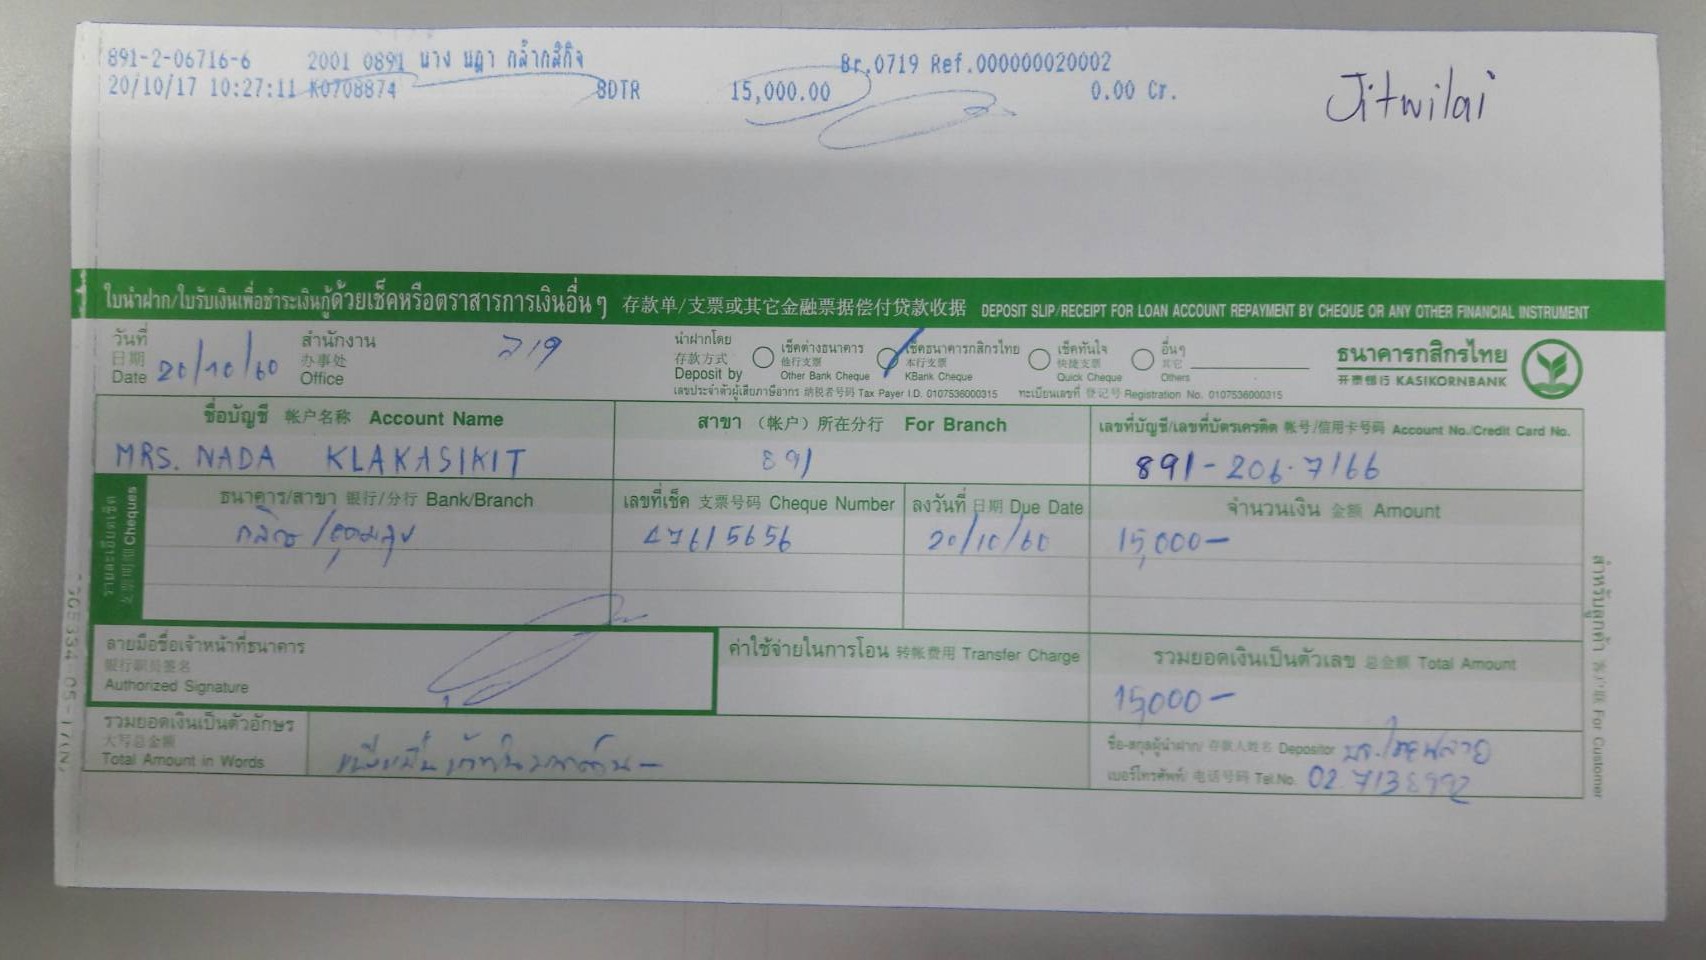 891-2-06716-6 2001 0891 นาง นฎา กล้ากสิกิจ Br.0719 Ref.000000020002
20/10/17 10:27:11 K0708874 SDTR 15,000.00 0.00 Cr.
Jitwilai
ใบนำฝาก/ใบรับเงินเพื่อชำระเงินกู้ด้วยเช็คหรือตราสารการเงินอื่น ๆ 存款单/支票或其它金融票据偿付贷款收据 DEPOSIT SLIP/RECEIPT FOR LOAN ACCOUNT REPAYMENT BY CHEQUE OR ANY OTHER FINANCIAL INSTRUMENT
วันที่ 日期 Date 20/10/60
สำนักงาน 办事处 Office 719
นำฝากโดย 存款方式 Deposit by
เช็คต่างธนาคาร 他行支票 Other Bank Cheque
เช็คธนาคารกสิกรไทย 本行支票 KBank Cheque
เช็คทันใจ 快捷支票 Quick Cheque
อื่นๆ 其它 Others
ธนาคารกสิกรไทย
开泰银行 KASIKORNBANK
เลขประจำตัวผู้เสียภาษีอากร 纳税者号码 Tax Payer I.D. 0107536000315 ทะเบียนเลขที่ 登记号 Registration No. 0107536000315
ชื่อบัญชี 帐户名称 Account Name สาขา （帐户）所在分行 For Branch เลขที่บัญชี/เลขที่บัตรเครดิต 帐号/信用卡号码 Account No./Credit Card No.
MRS. NADA KLAKASIKIT 891 891-206-7166
รายละเอียดเช็ค 支票明细 Cheques
ธนาคาร/สาขา 银行/分行 Bank/Branch เลขที่เช็ค 支票号码 Cheque Number ลงวันที่ 日期 Due Date จำนวนเงิน 金额 Amount
47615656 20/10/60 15,000-
ลายมือชื่อเจ้าหน้าที่ธนาคาร
银行职员签名
Authorized Signature
ค่าใช้จ่ายในการโอน 转帐费用 Transfer Charge
รวมยอดเงินเป็นตัวเลข 总金额 Total Amount
15,000-
รวมยอดเงินเป็นตัวอักษร
大写总金额
Total Amount in Words
ชื่อ-สกุลผู้นำฝาก/ 存款人姓名 Depositor
เบอร์โทรศัพท์/ 电话号码 Tel.No. 02 7138992
สำหรับลูกค้า 客户联 For Customer